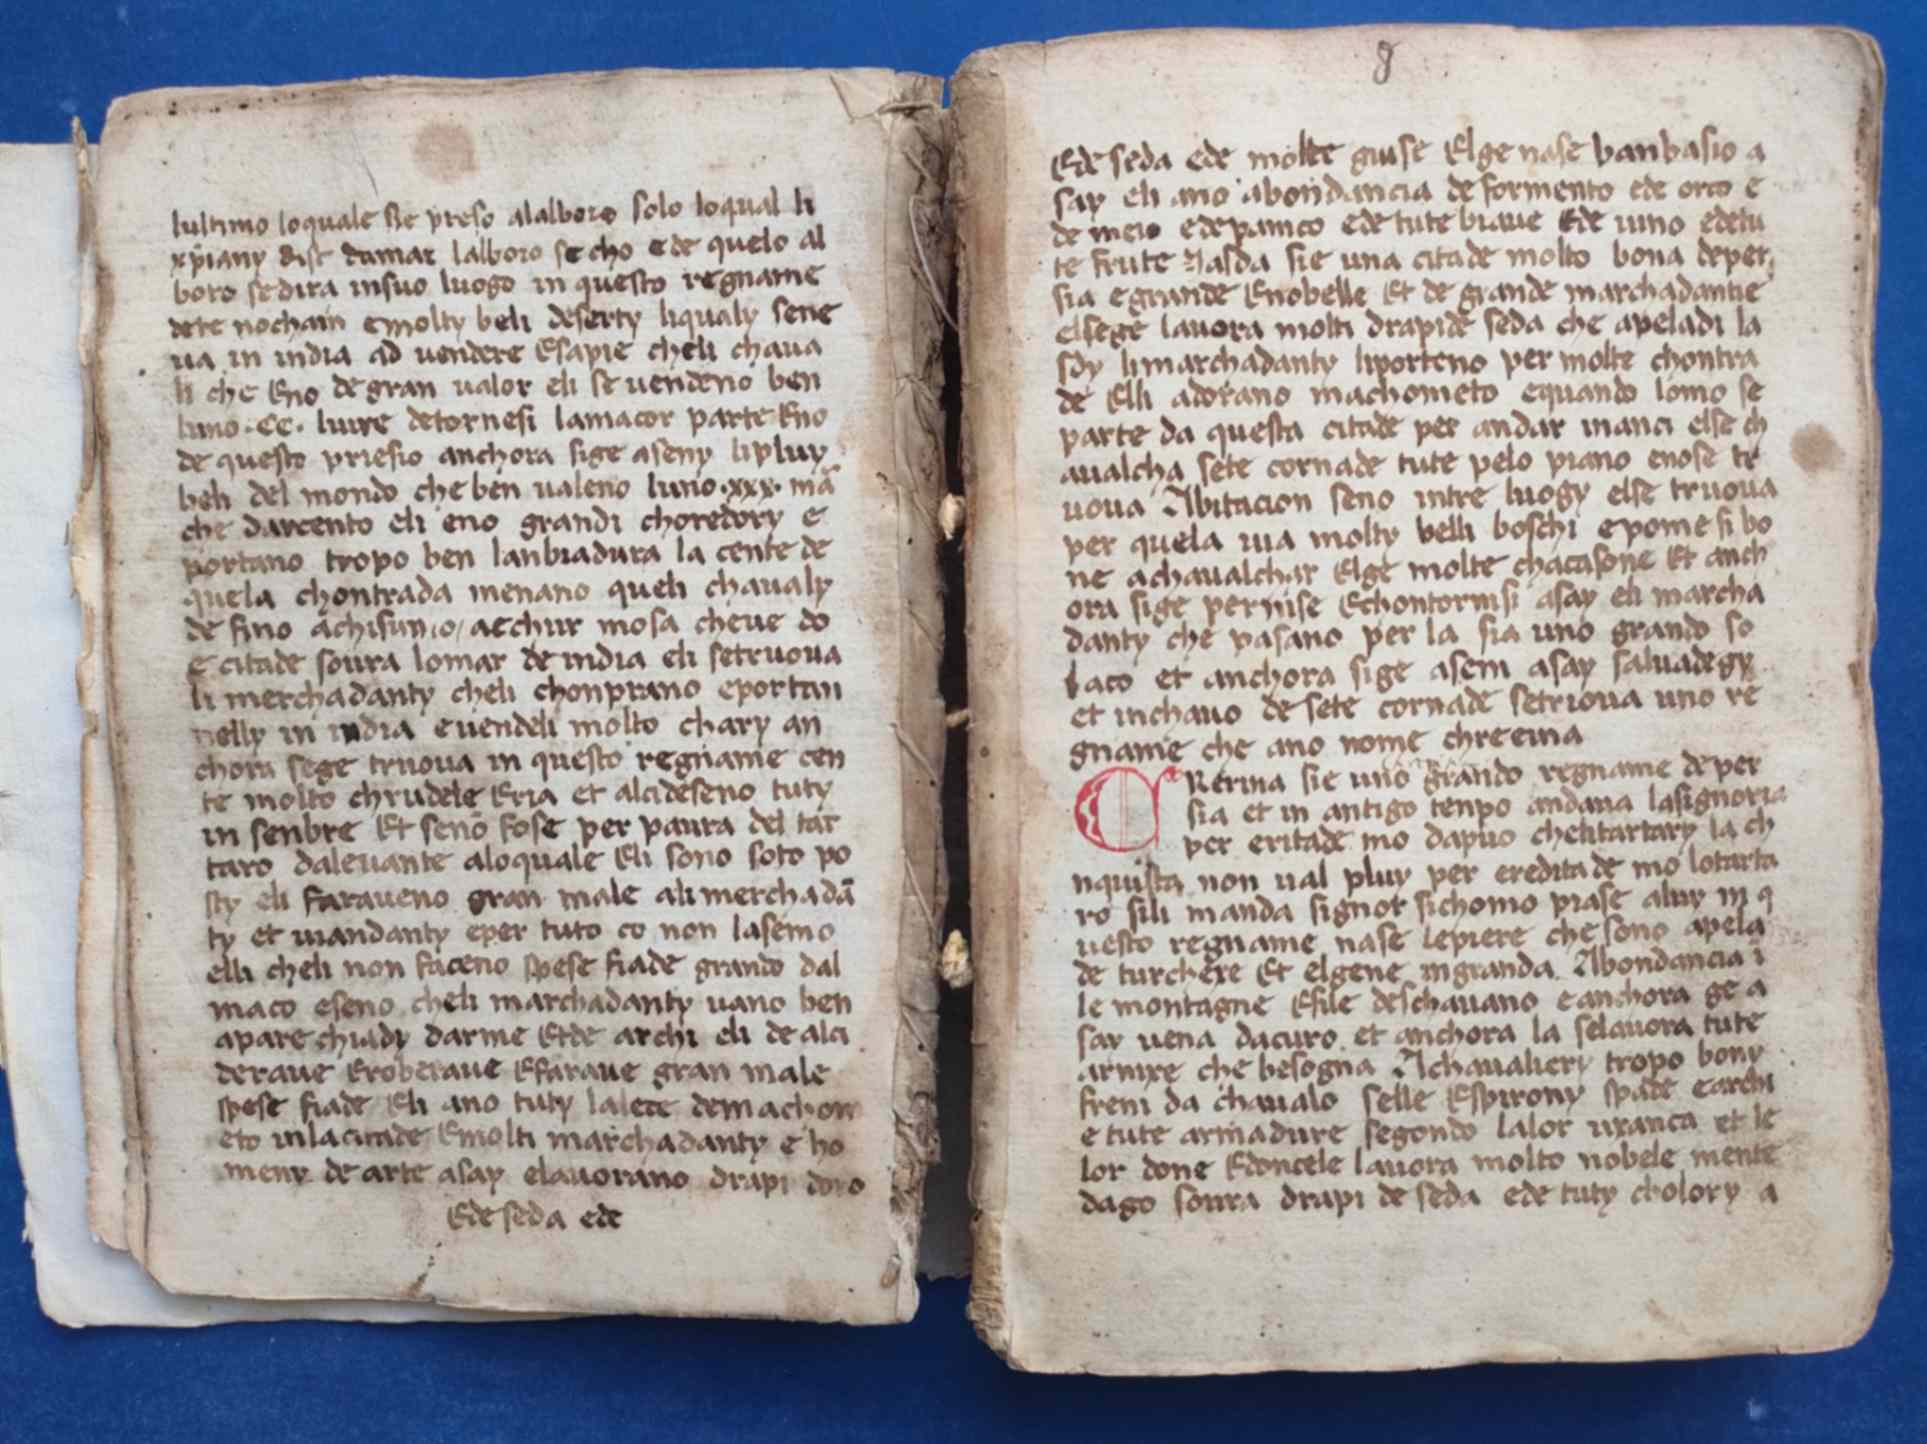 lultimo loquale sie preso alalboro solo loqual li
xpiany dise damar lalboro secho ede quelo al
boro sedira insuo luogo in questo regname
dete nochain emolty beli deserty liqualy sene
va in india ad vendere Esapie cheli chava
li che Eno de gran valor eli se vendeno ben
luno .CC. livre detornesi lamacor parte Eno
de questo priesio anchora sige aseny li pluy
beli del mondo che ben valeno luno .xxx. mā
che darcento eli eno grandi choredory e
portano tropo ben lanbiadura la cente de
quela chontrada menano queli chavaly
de fino achisi aechur mosa cheve do
e citade sovra lomar de india eli setruova
li merchadanty cheli chonprano eportan
nelly in india e vendeli molto chary an
chora sege truova in questo regname cen
te molto chrudele Eria et alcideseno tuty
in senbre Et seno fose per paura del tar
taro dalevante aloquale Eli sono soto po
sty eli faraveno gran male ali merchadā
ty et viandanty eper tuto co non lasemo
elli cheli non faceno spese fiade grando dal
maco eseno cheli marchadanty vano ben
aparechiady darme Etde archi eli de alci
derave Eroberave Efarave gran male
spese fiade Eli ano tuty lalece demachom
eto inlacitade Emolti marchadanty e ho
meny de arte asay elavorano drapi doro
Ede seda ede
8
Ede seda ede molte guise Elge nase banbasio a
say eli ano abondancia de formento ede orco e
de meio ede panico ede tute biave Ede vino edetu
te frute Jasda sie una citade molto bona deper
sia egrande Enobelle Et de grande marchadantie
elsege lavora molti drapi de seda che apeladi la
sdy li marchadanty liporteno per molte chontra
de Elli adorano machometo equando lomo se
parte da questa citade per andar inanci else ch
avalcha sete cornade tute pelo piano enose tr
uova Abitacion seno intre luogy else truova
per quela via molty belli boschi epomesi bo
ne achavalchar Elge molte chacasone Et anch
ora sige pernise Echontornisi asay eli marcha
danty che pasano per la sia uno grando so
laco et anchora sige aseni asay salvadegy
et inchavo de sete cornade setriova uno re
gname che ano nome chreema
CRerina sie uno grando regname de per
sia et in antigo tenpo andava lasignoria
per eritade mo dapuo chelitartary la ch
nquista non val pluy per eredita de mo lotarta
ro sili manda signor sichomo piase aluy in q
uesto regname nase lepiere che sono apela
de turchexe Et elgene ingranda Abondancia i
le montagne Esile deschavano eanchora ge a
say vena dacuro et anchora la selavora tute
arnixe che besogna Achavaliery tropo bony
freni da chavalo selle Espirony spade earchi
e tute armadure segondo lalor uxanca et le
lor done Edoncele lavora molto nobele mente
dago sovra drapi de seda ede tuty cholory a